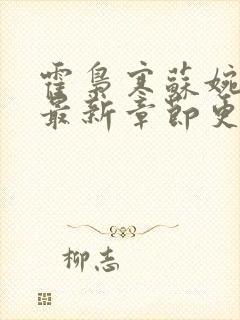 霍梟寒蘇婉
最新章節更
柳志